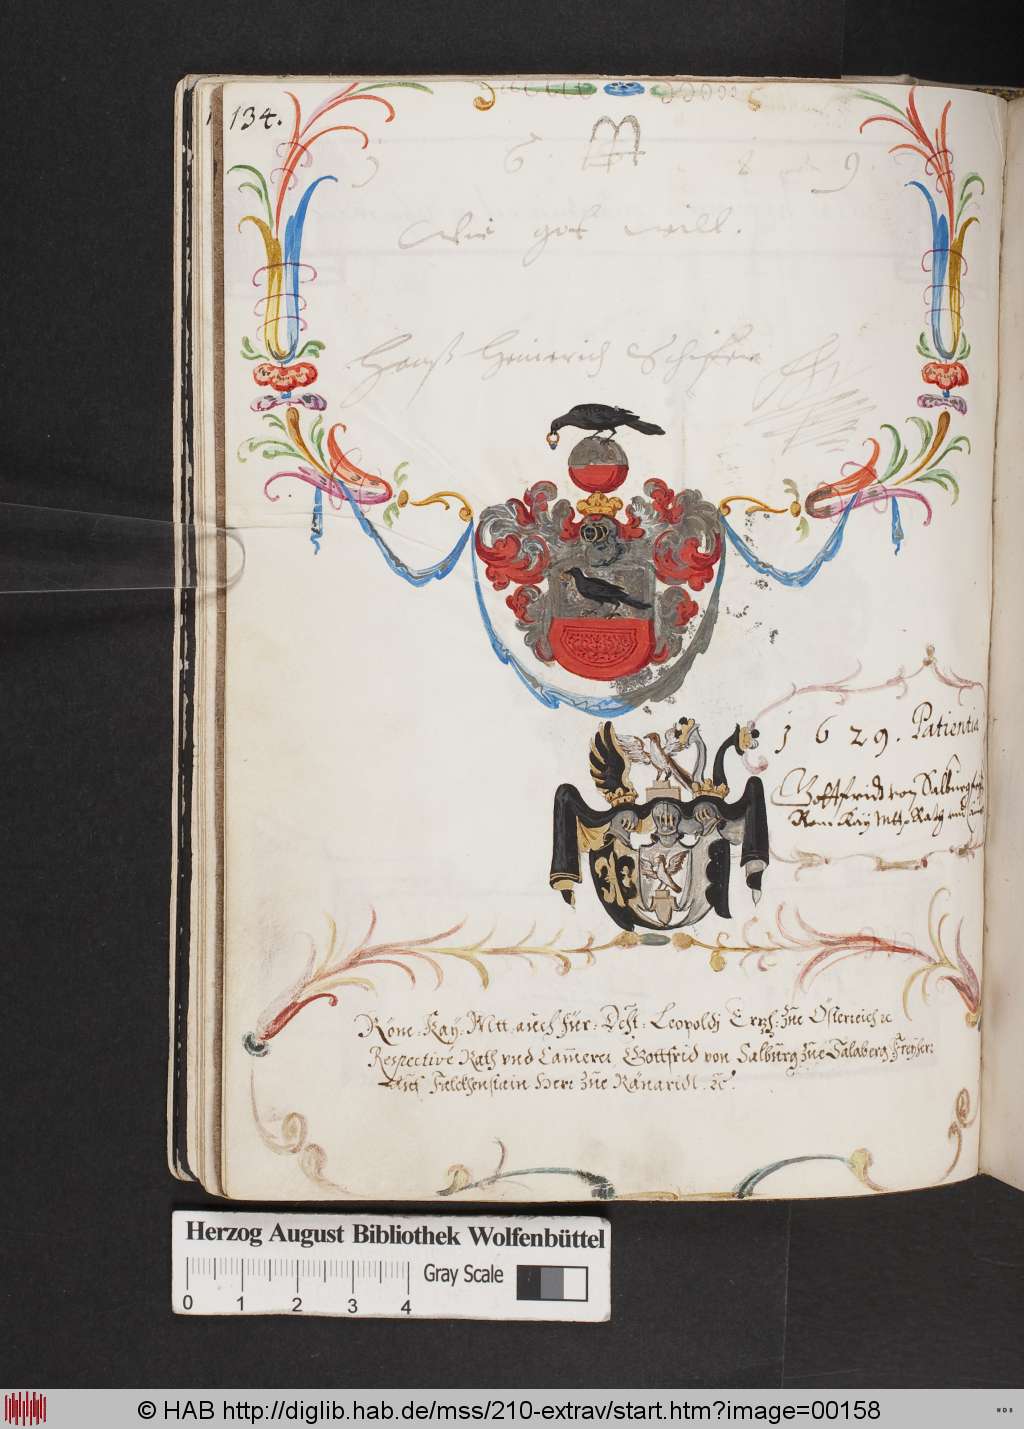 134.
1 6. 8 9.
Wie got will.
Hanß Heinerich Schifer
1 6 29. Patientia
Gottfridt von Salburg
Röm Kay Mtt: Rath und
Röm: Kay: Mtt auch Für: Dcht: Leopoldj Ertzh: Zue Österreich ꝛc
Respective Rath vnd Camerer Gottfrid von Salburg Zue Salaberg Freyherr
Auf Falckhenstain Herr Zue Ränaridl. ꝛc.
Herzog August Bibliothek Wolfenbüttel
Gray Scale
0 1 2 3 4
© HAB http://diglib.hab.de/mss/210-extrav/start.htm?image=00158